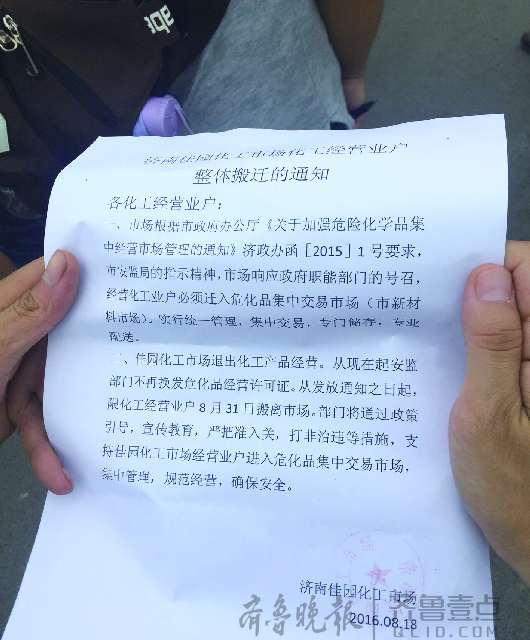 济南佳园化工市场化工经营业户
整体搬迁的通知
各化工经营业户：
一、市场根据市政府办公厅《关于加强危险化学品集
中经营市场管理的通知》济政办函［2015］1号要求，
市安监局的指示精神，市场响应政府职能部门的号召，
经营化工业户必须迁入危化品集中交易市场（市新材
料市场）。实行统一管理，集中交易，专门储存，专业
配送。
二、佳园化工市场退出化工产品经营。从现在起安监
部门不再换发危化品经营许可证。从发放通知之日起，
限化工经营业户8月31日搬离市场。部门将通过政策
引导，宣传教育，严把准入关，打非治违等措施，支
持佳园化工市场经营业户进入危化品集中交易市场，
集中管理，规范经营，确保安全。
济南佳园化工市场
2016.08.18
齐鲁晚报 齐鲁壹点
QLID.COM.CN